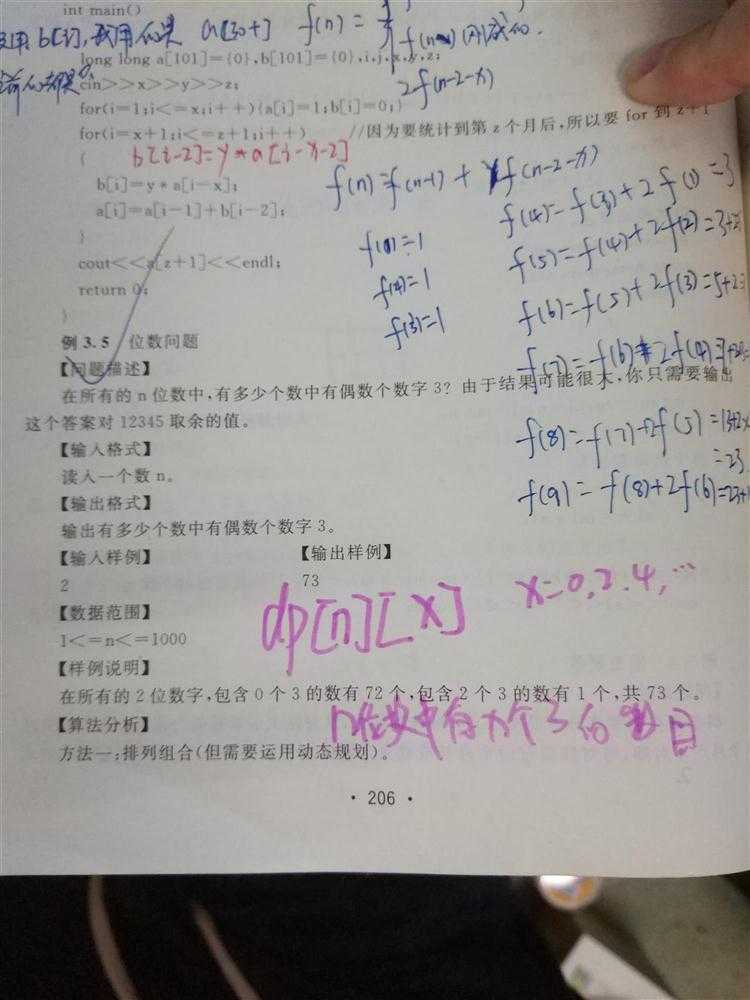 int main()
b[i],我用 a[30+] f(n) =
f(n-1)
long long a[101]={0},b[101]={0},i,j,x,y,z;
2f(n-2-x)
cin>>x>>y>>z;
for(i=1;i<=x;i++){a[i]=1;b[i]=0;}
for(i=x+1;i<=z+1;i++) //因为要统计到第 z 个月后,所以要 for 到 z+1
{ b[i-2]=y*a[i-x-2]
f(n)=f(n-1) + yf(n-2-x)
b[i]=y*a[i-x];
f(4)=f(3)+2f(1)=3
a[i]=a[i-1]+b[i-2];
}
f(5)=f(4)+2f(2)=3+2
cout<<a[z+1]<<endl;
return 0;
f(3)=1
f(6)=f(5)+2f(3)=5+2
}
例 3.5 位数问题
【问题描述】
f(7)=f(6)+2f(4)
在所有的 n 位数中,有多少个数中有偶数个数字 3?由于结果可能很大,你只需要输出
这个答案对 12345 取余的值。
f(8)=f(7)+2f(5)=13+2x
=23
【输入格式】
读入一个数 n。
f(9)=f(8)+2f(6)=23+
【输出格式】
输出有多少个数中有偶数个数字 3。
【输入样例】 【输出样例】
2 73
dp[n][x] x=0,2,4,…
【数据范围】
1<=n<=1000
【样例说明】
在所有的 2 位数字,包含 0 个 3 的数有 72 个,包含 2 个 3 的数有 1 个,共 73 个。
n位数中有x个3的数目
【算法分析】
方法一:排列组合(但需要运用动态规划)。
· 206 ·